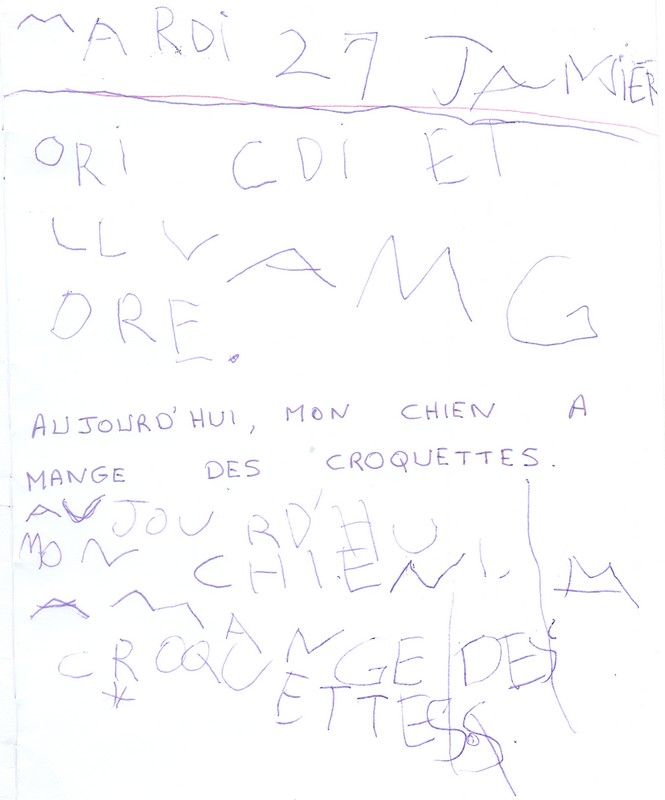 MARDI 27 JANVIER
ORI CDI ET
LL V A M G
ORE.
AUJOURD'HUI, MON CHIEN A
MANGE DES CROQUETTES.
AUJOURD'HU
MON CHIEN I.
A MANGE DES
CROQUETTES.